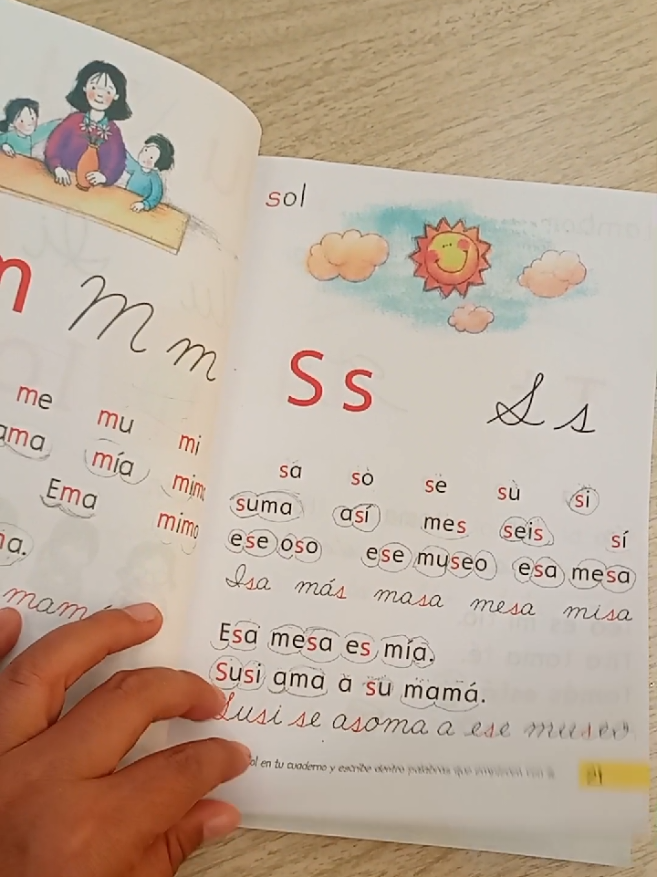 m M m
me mu mi
ama mía mima
Ema mimo
a.
mamá
sol
S s S s
sa so se su si
suma así mes seis sí
ese oso ese museo esa mesa
Isa más masa mesa misa
Esa mesa es mía.
Susi ama a su mamá.
Susi se asoma a ese museo
sol en tu cuaderno y escribe dentro palabras que empiecen con s